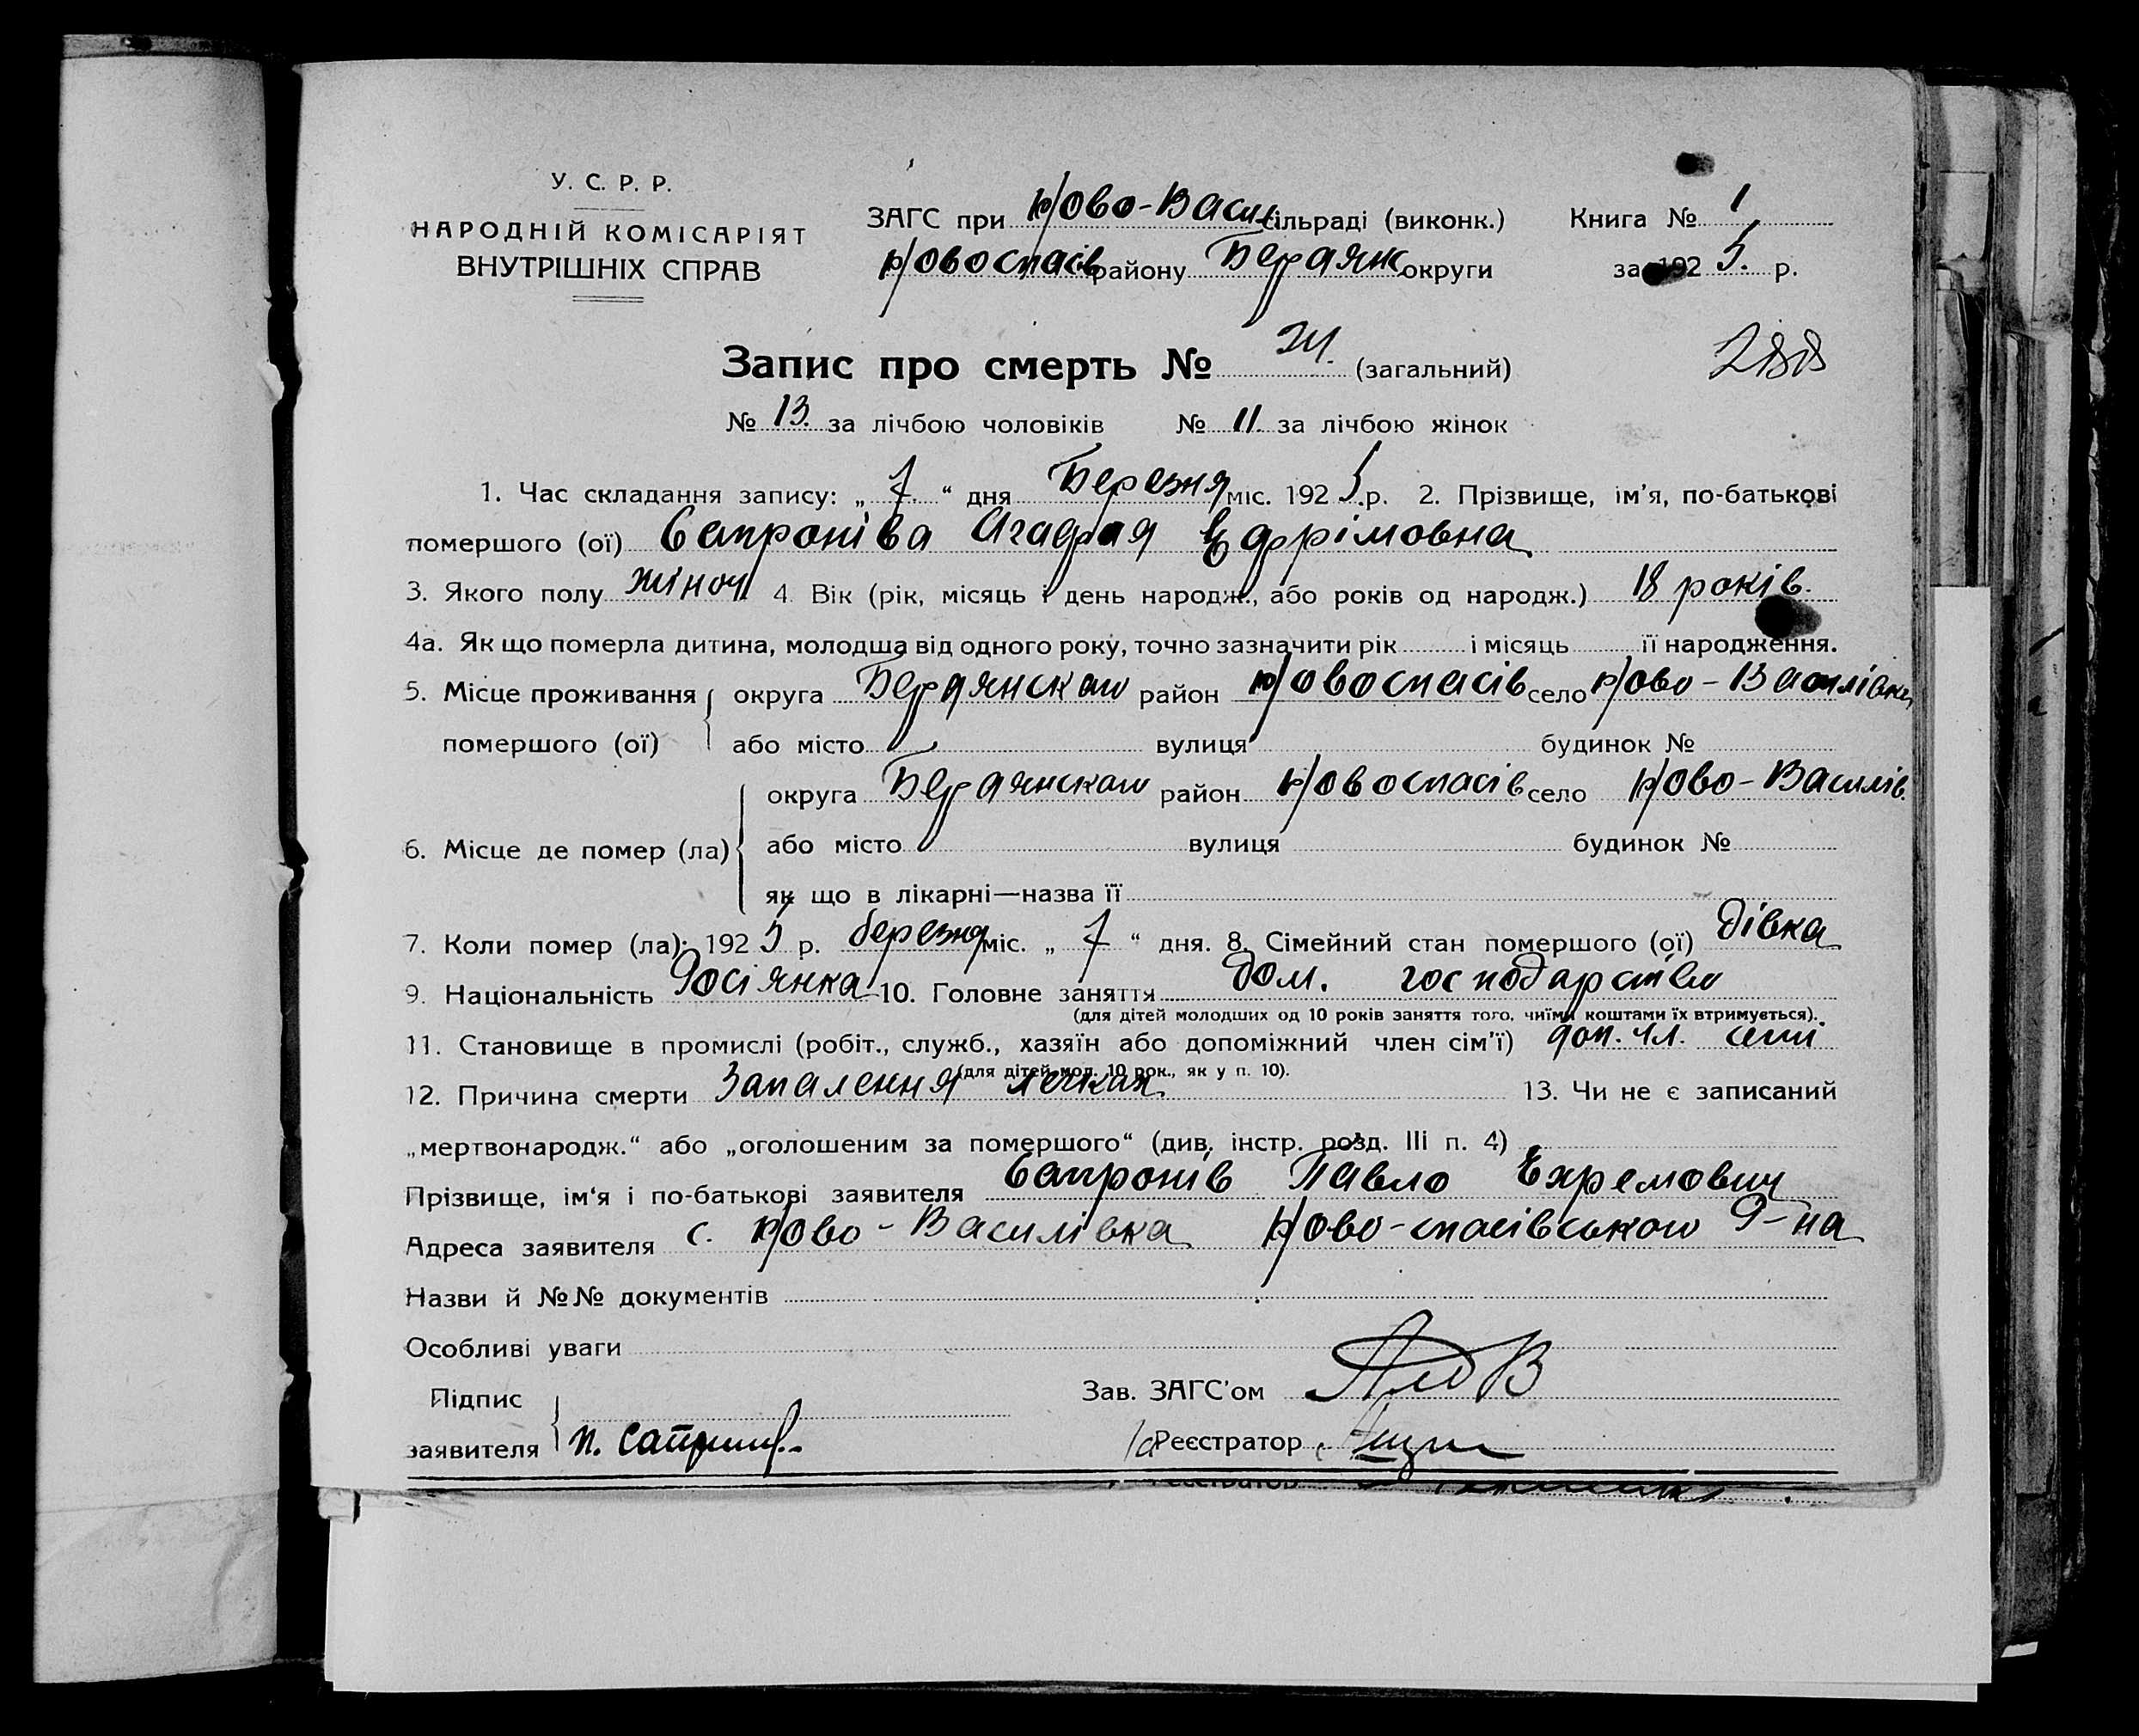 У. С. Р. Р.
НАРОДНІЙ КОМІСАРІЯТ
ВНУТРІШНІХ СПРАВ
ЗАГС при Ново-Васил. сільраді (виконк.) Книга № 1
Новоспасів району Бердянск округи за 1925. р.
Запис про смерть № 24. (загальний)
№ 13. за лічбою чоловіків № 11. за лічбою жінок
1. Час складання запису: „ 7. “ дня Березня міс. 1925 р. 2. Прізвище, ім'я, по-батькові
помершого (ої) Сапронівa Агафія Ефрімовна
3. Якого полу жіноч 4. Вік (рік, місяць і день народж., або років од народж.) 18 років.
4а. Як що померла дитина, молодша від одного року, точно зазначити рік і місяць її народження.
5. Місце проживання округа Бердянского район Новоспасів село Ново-Василівка
помершого (ої) або місто вулиця будинок №
округа Бердянского район Новоспасів село Ново-Василів.
6. Місце де помер (ла) або місто вулиця будинок №
як що в лікарні—назва її
7. Коли помер (ла): 1925 р. березня міс. „ 7 “ дня. 8. Сімейний стан помершого (ої) дівка
9. Національність Росіянка 10. Головне заняття дом. господарство
(для дітей молодших од 10 років заняття того, чиїми коштами їх втримується).
11. Становище в промислі (робіт., служб., хазяїн або допоміжний член сім'ї) доп. чл. семї
(для дітей мол. 10 рок., як у п. 10).
12. Причина смерти Запалення легких 13. Чи не є записаний
„мертвонародж.“ або „оголошеним за помершого“ (див. інстр. розд. III п. 4)
Прізвище, ім'я і по-батькові заявителя Сапронів Павло Ехремович
Адреса заявителя с. Ново-Василівка Ново-спасівського Р-на
Назви й №№ документів
Особливі уваги
Підпис
заявителя П. Сапронов
Зав. ЗАГС'ом
Реєстратор
Реєстратор